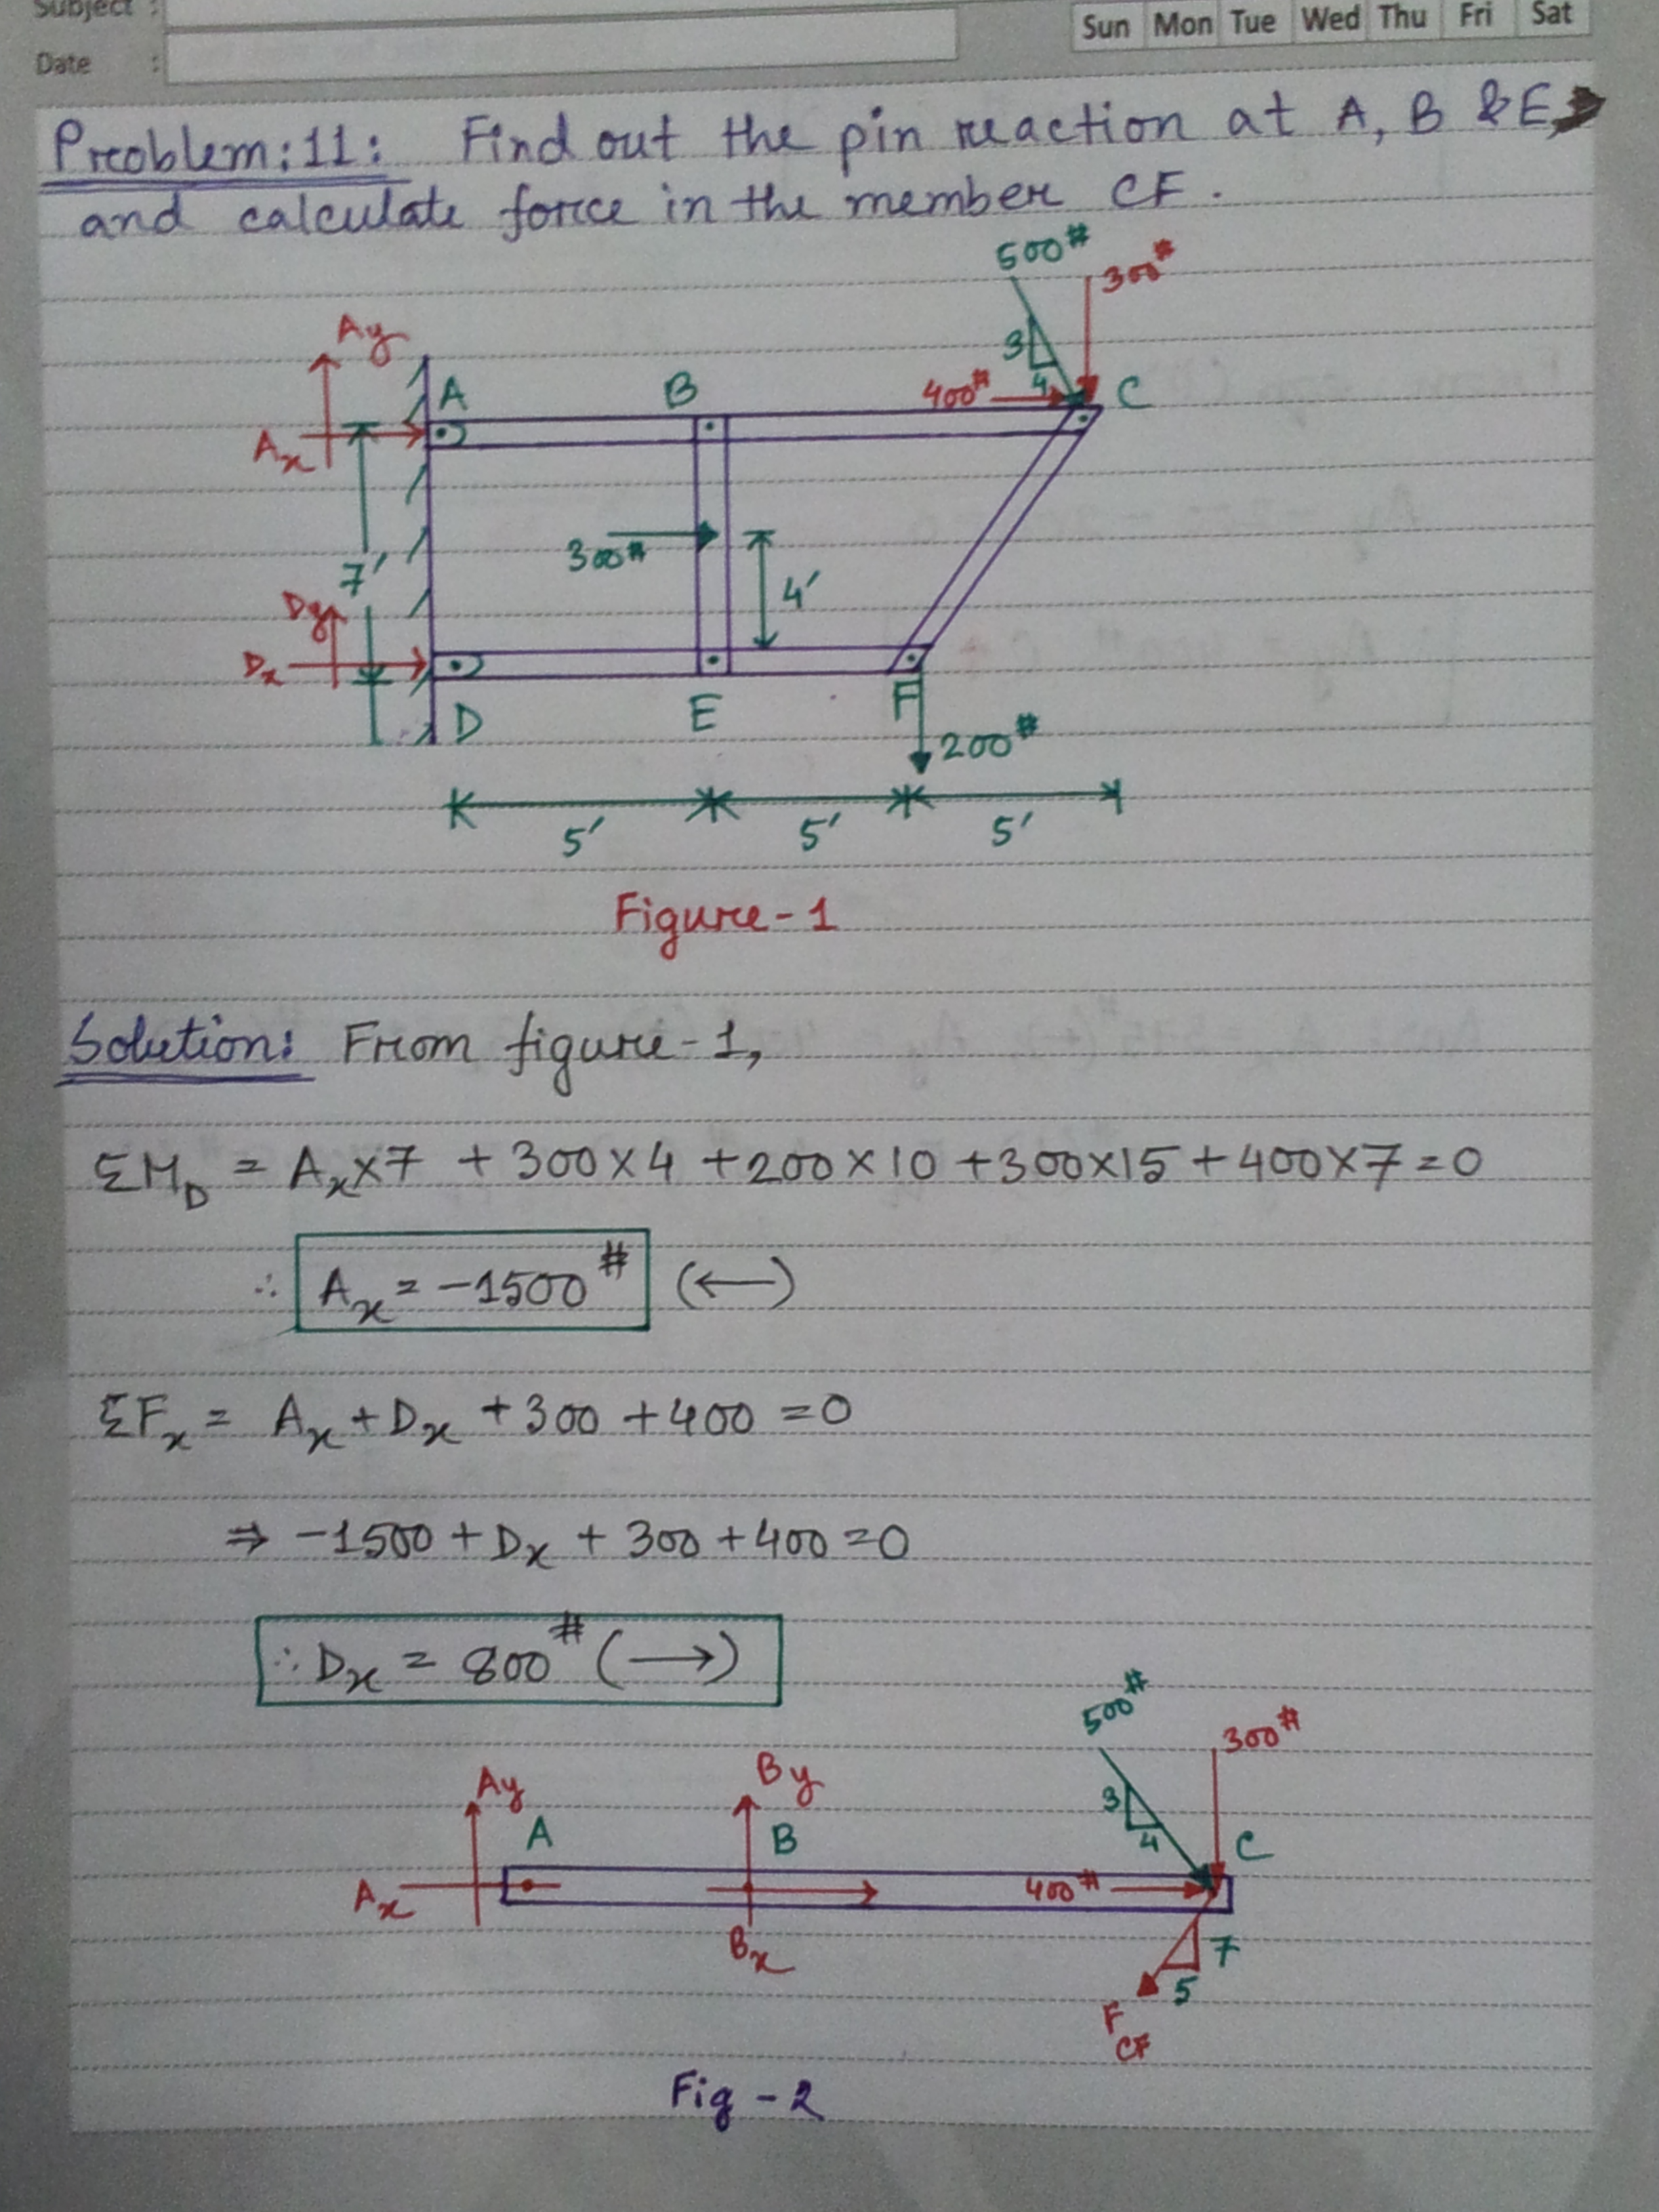 Subject :
Date :
Sun Mon Tue Wed Thu Fri Sat
Problem:11: Find out the pin reaction at A, B & E,
and calculate force in the member CF.
500#
300#
Ay
3
4
400#
A
B
C
Ax
300#
7'
4'
Dy
Dx
D
E
F
200#
5' 5' 5'
Figure-1
Solution: From figure-1,
ΣM_D = Ax×7 + 300×4 + 200×10 + 300×15 + 400×7 = 0
∴ Ax = -1500# (←)
ΣFx = Ax + Dx + 300 + 400 = 0
⇒ -1500 + Dx + 300 + 400 = 0
∴ Dx = 800# (→)
500#
300#
Ay
By
3
4
A
B
C
Ax
400#
Bx
7
5
F CF
Fig - 2